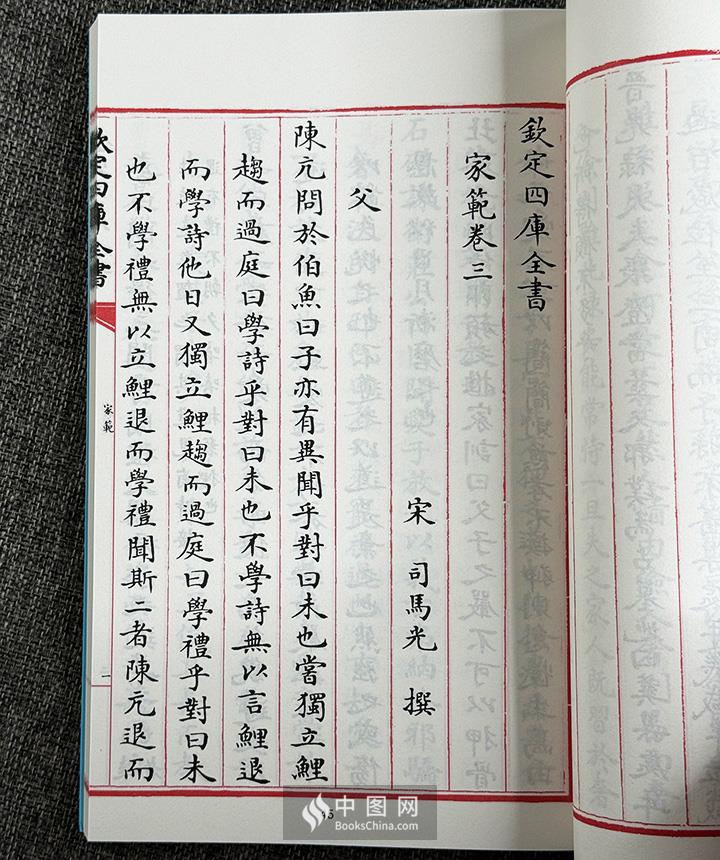 欽定四庫全書
家範卷三
宋 司馬光 撰
父
陳亢問於伯魚曰子亦有異聞乎對曰未也嘗獨立鯉
趨而過庭曰學詩乎對曰未也不學詩無以言鯉退
而學詩他日又獨立鯉趨而過庭曰學禮乎對曰未
也不學禮無以立鯉退而學禮聞斯二者陳亢退而
欽定四庫全書
家範
一
45
中图网
BooksChina.com